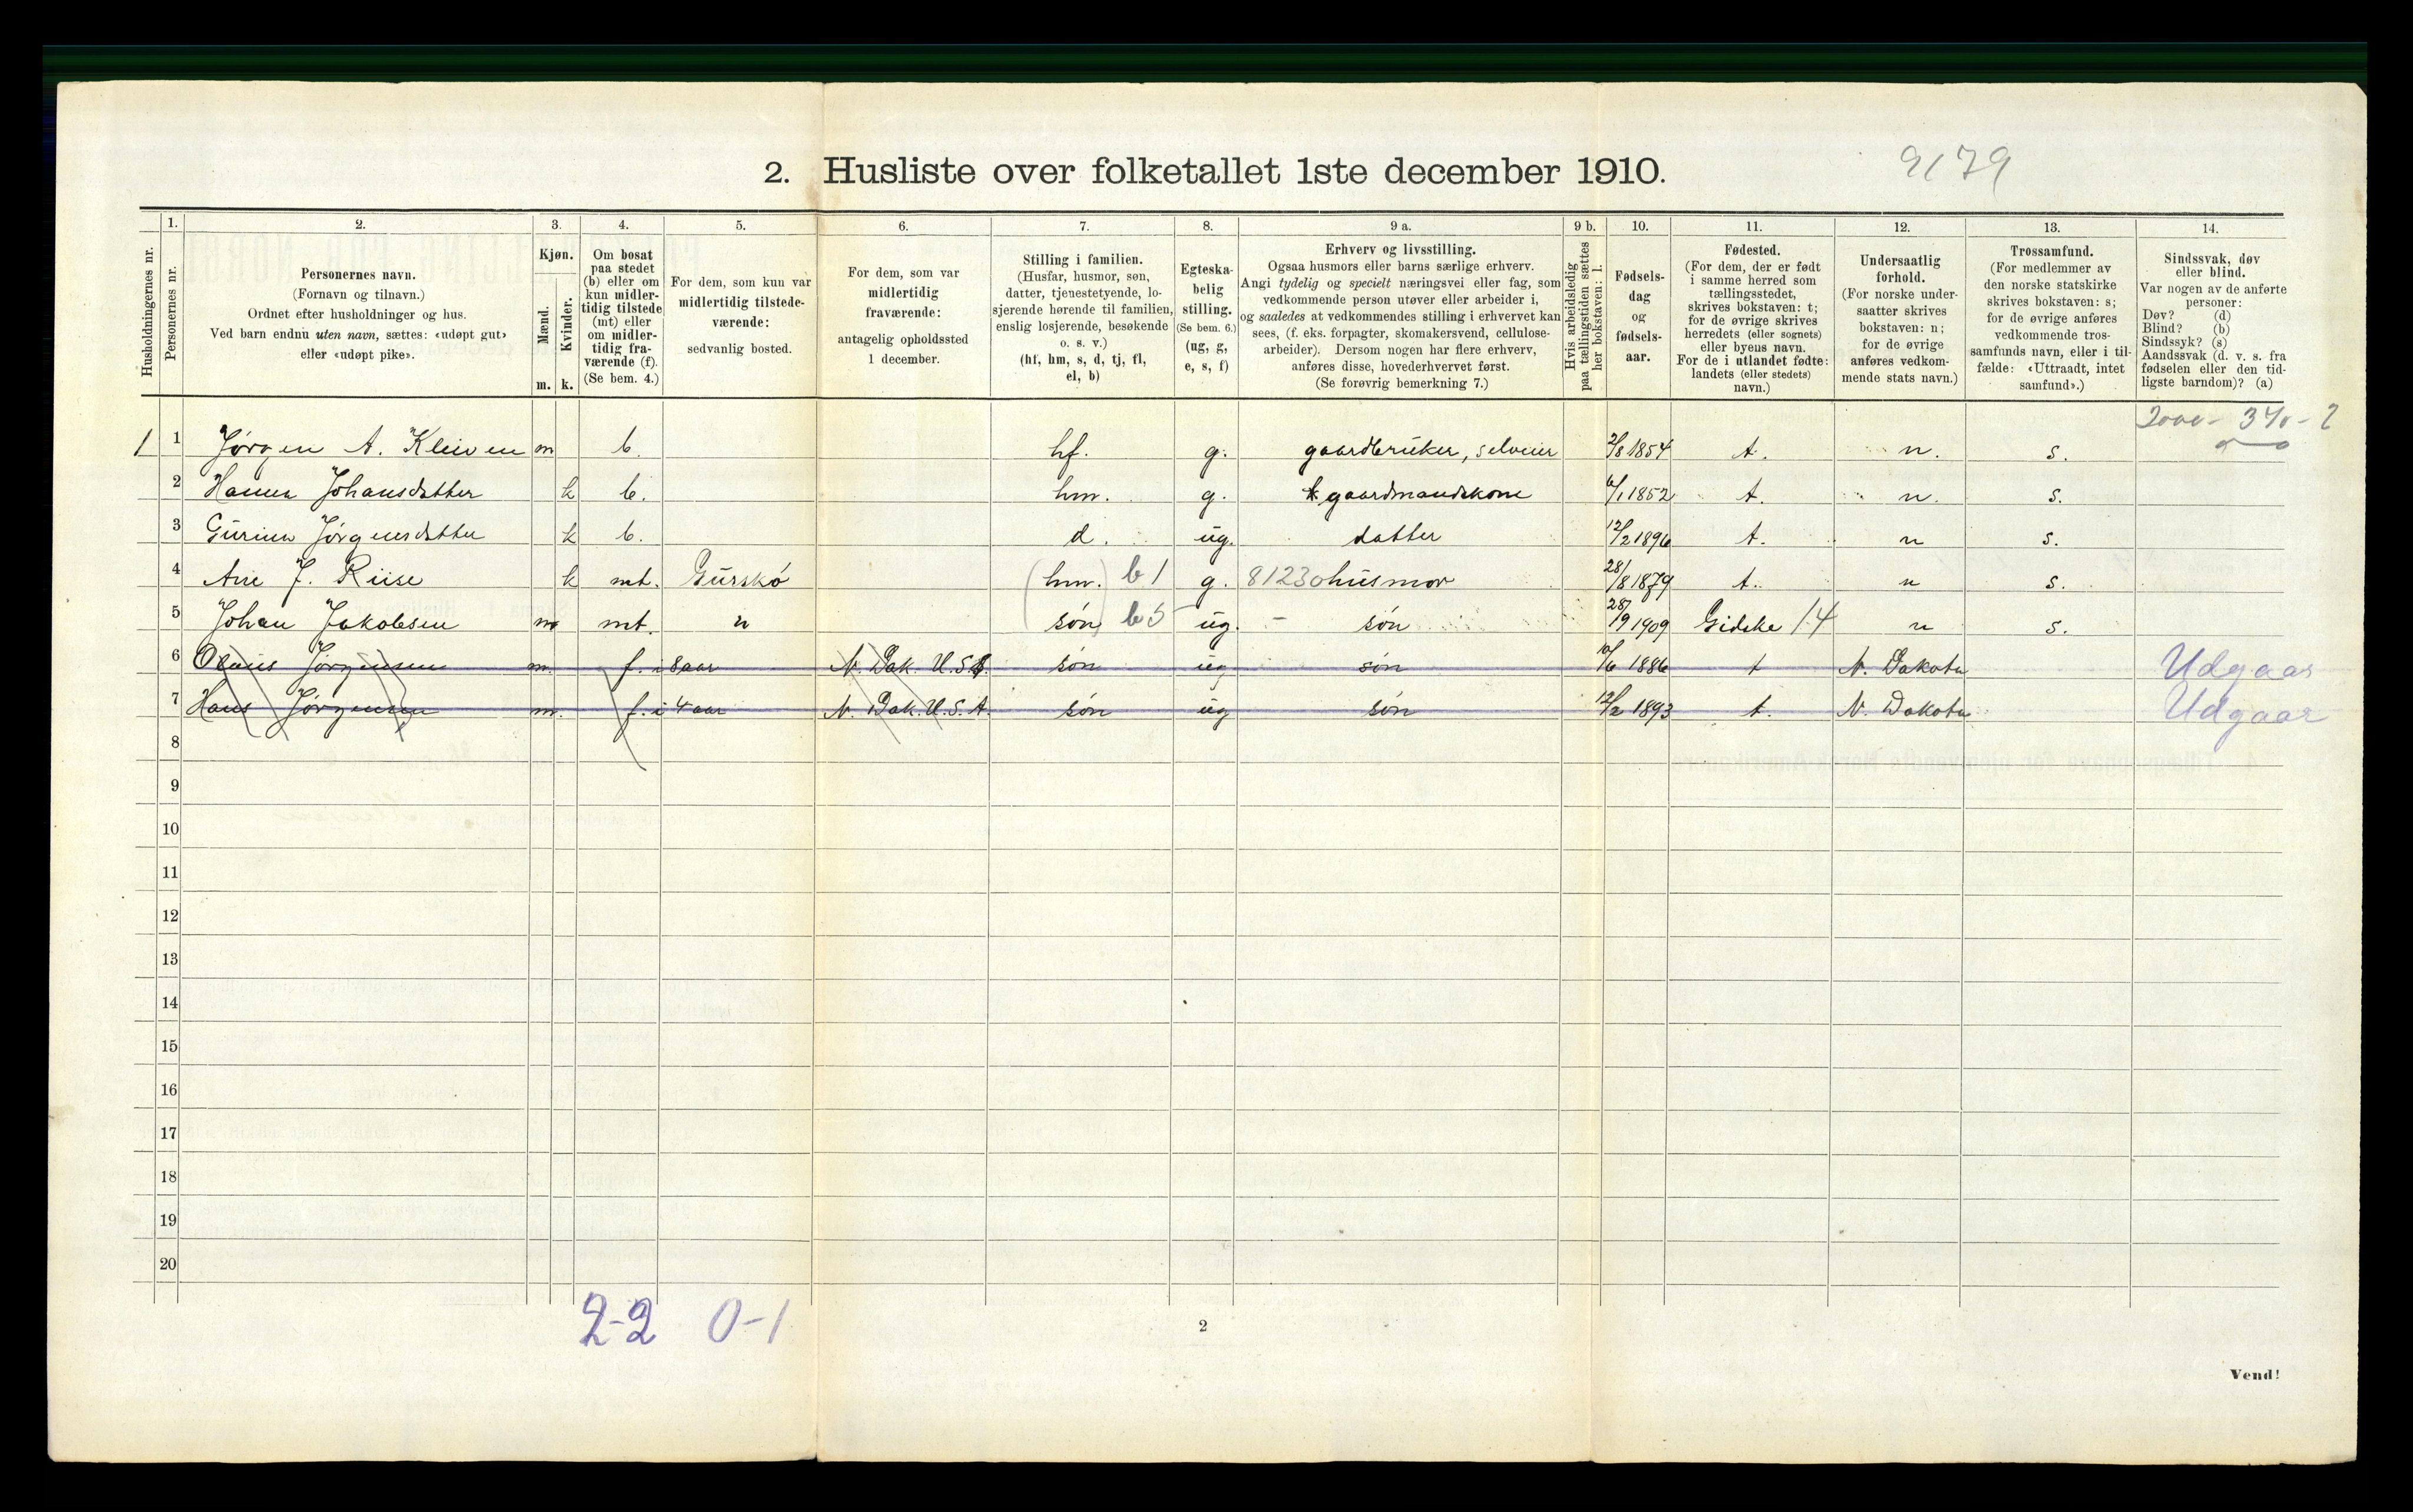 2. Husliste over folketallet 1ste december 1910.
9179
Husholdningernes nr.
1.
Personernes nr.
2.
Personernes navn.
(Fornavn og tilnavn.)
Ordnet efter husholdninger og hus.
Ved barn endnu uten navn, sættes: «udøpt gut»
eller «udøpt pike».
3.
Kjøn.
Mænd.
Kvinder.
m. k.
4.
Om bosat
paa stedet
(b) eller om
kun midler-
tidig tilstede
(mt) eller
om midler-
tidig fra-
værende (f).
(Se bem. 4.)
5.
For dem, som kun var
midlertidig tilstede-
værende:
sedvanlig bosted.
6.
For dem, som var
midlertidig
fraværende:
antagelig opholdssted
1 december.
7.
Stilling i familien.
(Husfar, husmor, søn,
datter, tjenestetyende, lo-
sjerende hørende til familien,
enslig losjerende, besøkende
o. s. v.)
(hf, hm, s, d, tj, fl,
el, b)
8.
Egteska-
belig
stilling.
(Se bem. 6.)
(ug, g,
e, s, f)
9 a.
Erhverv og livsstilling.
Ogsaa husmors eller barns særlige erhverv.
Angi tydelig og specielt næringsvei eller fag, som
vedkommende person utøver eller arbeider i,
og saaledes at vedkommendes stilling i erhvervet kan
sees, (f. eks. forpagter, skomakersvend, cellulose-
arbeider). Dersom nogen har flere erhverv,
anføres disse, hovederhvervet først.
(Se forøvrig bemerkning 7.)
9 b.
Hvis arbeidsledig
paa tællingstiden sættes
her bokstaven: l.
10.
Fødsels-
dag
og
fødsels-
aar.
11.
Fødested.
(For dem, der er født
i samme herred som
tællingsstedet,
skrives bokstaven: t;
for de øvrige skrives
herredets (eller sognets)
eller byens navn.
For de i utlandet fødte:
landets (eller stedets)
navn.)
12.
Undersaatlig
forhold.
(For norske under-
saatter skrives
bokstaven: n;
for de øvrige
anføres vedkom-
mende stats navn.)
13.
Trossamfund.
(For medlemmer av
den norske statskirke
skrives bokstaven: s;
for de øvrige anføres
vedkommende tros-
samfunds navn, eller i til-
fælde: «Uttraadt, intet
samfund».)
14.
Sindssvak, døv
eller blind.
Var nogen av de anførte
personer:
Døv? (d)
Blind? (b)
Sindssyk? (s)
Aandssvak (d. v. s. fra
fødselen eller den tid-
ligste barndom)? (a)
1 1 Jørgen A. Kleiven m b. hf. g. gaardbruker, selveier 2/8 1854 t. n. s.
2 Hanna Johansdatter k b. hm. g. gaardmandskone 6/1 1852 t. n. s.
3 Gurina Jørgensdatter k b. d. ug. datter 12/2 1896 t. n s.
4 Ane J. Riise k mt. Gurskø (hm.) b 1 g. 81230 husmor 28/8 1879 t. n s.
5 Johan Jakobsen m mt. " søn b 5 ug. - søn 28/9 1909 Gidske 14 n s.
6 Jørgensen m. f. i 8 aar N. Dak. U.S.A. søn ug søn 10/6 1886 t N. Dakota Udgaar
7 Hans Jørgensen m. f. i 4 aar N. Dak. U.S.A. søn ug søn 12/2 1893 t. N. Dakota Udgaar
8
9
10
11
12
13
14
15
16
17
18
19
20
2-2 0-1
2
Vend!